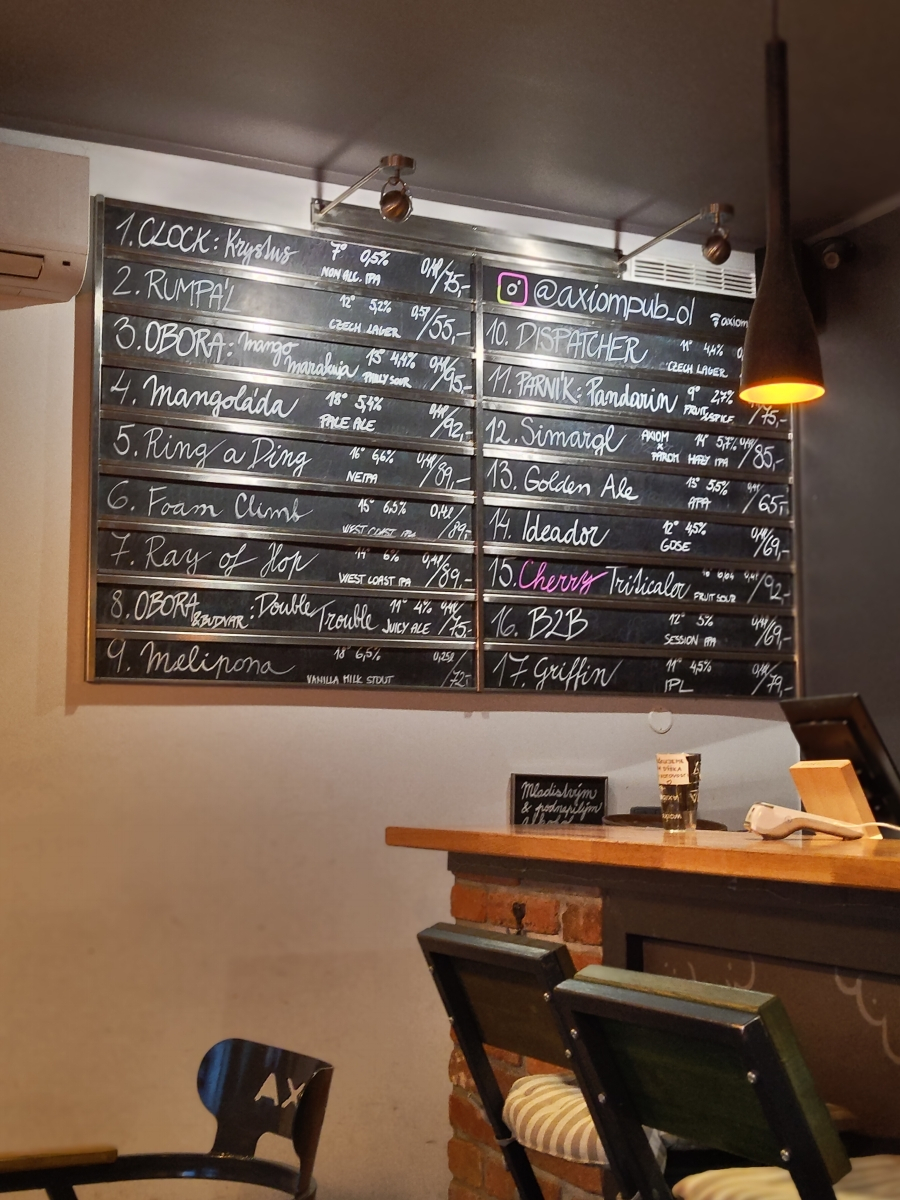 1. CLOCK: Krystus 7° 0,5% NON ALC. IPA 0,4l/75,-
2. RUMPÁL 12° 5,2% CZECH LAGER 0,5l/55,-
3. OBORA: mango marakuja 15° 4,4% FRUITY SOUR 0,4l/95,-
4. Mangoláda 18° 5,4% PALE ALE 0,4l/92,-
5. Ring a Ding 16° 6,6% NEIPA 0,4l/89,-
6. Foam Climb 15° 6,5% WEST COAST IPA 0,4l/89,-
7. Ray of Hop 14° 6% WEST COAST IPA 0,4l/89,-
8. OBORA & BUDVAR: Double Trouble 11° 4% JUICY ALE 0,4l/75,-
9. Melipona 18° 6,5% VANILLA MILK STOUT 0,25l/72,-
@axiompub_ol axiom
10. DISPATCHER 11° 4,4% CZECH LAGER
11. PARNÍK: Pandarin 9° 2,7% FRUIT/SPICE /75,-
12. Simargl AXIOM x PÁROM 14° 5,7% HAZY IPA 0,4l/85,-
13. Golden Ale 13° 5,5% APA 0,4l/65,-
14. Ideador 12° 4,5% GOSE 0,4l/69,-
15. Cherry Triticalor FRUIT SOUR 0,4l/92,-
16. B2B 12° 5% SESSION IPA 0,4l/69,-
17. Griffin 11° 4,5% IPL 0,4l/79,-
Mladistvým
& podnapilým
AX